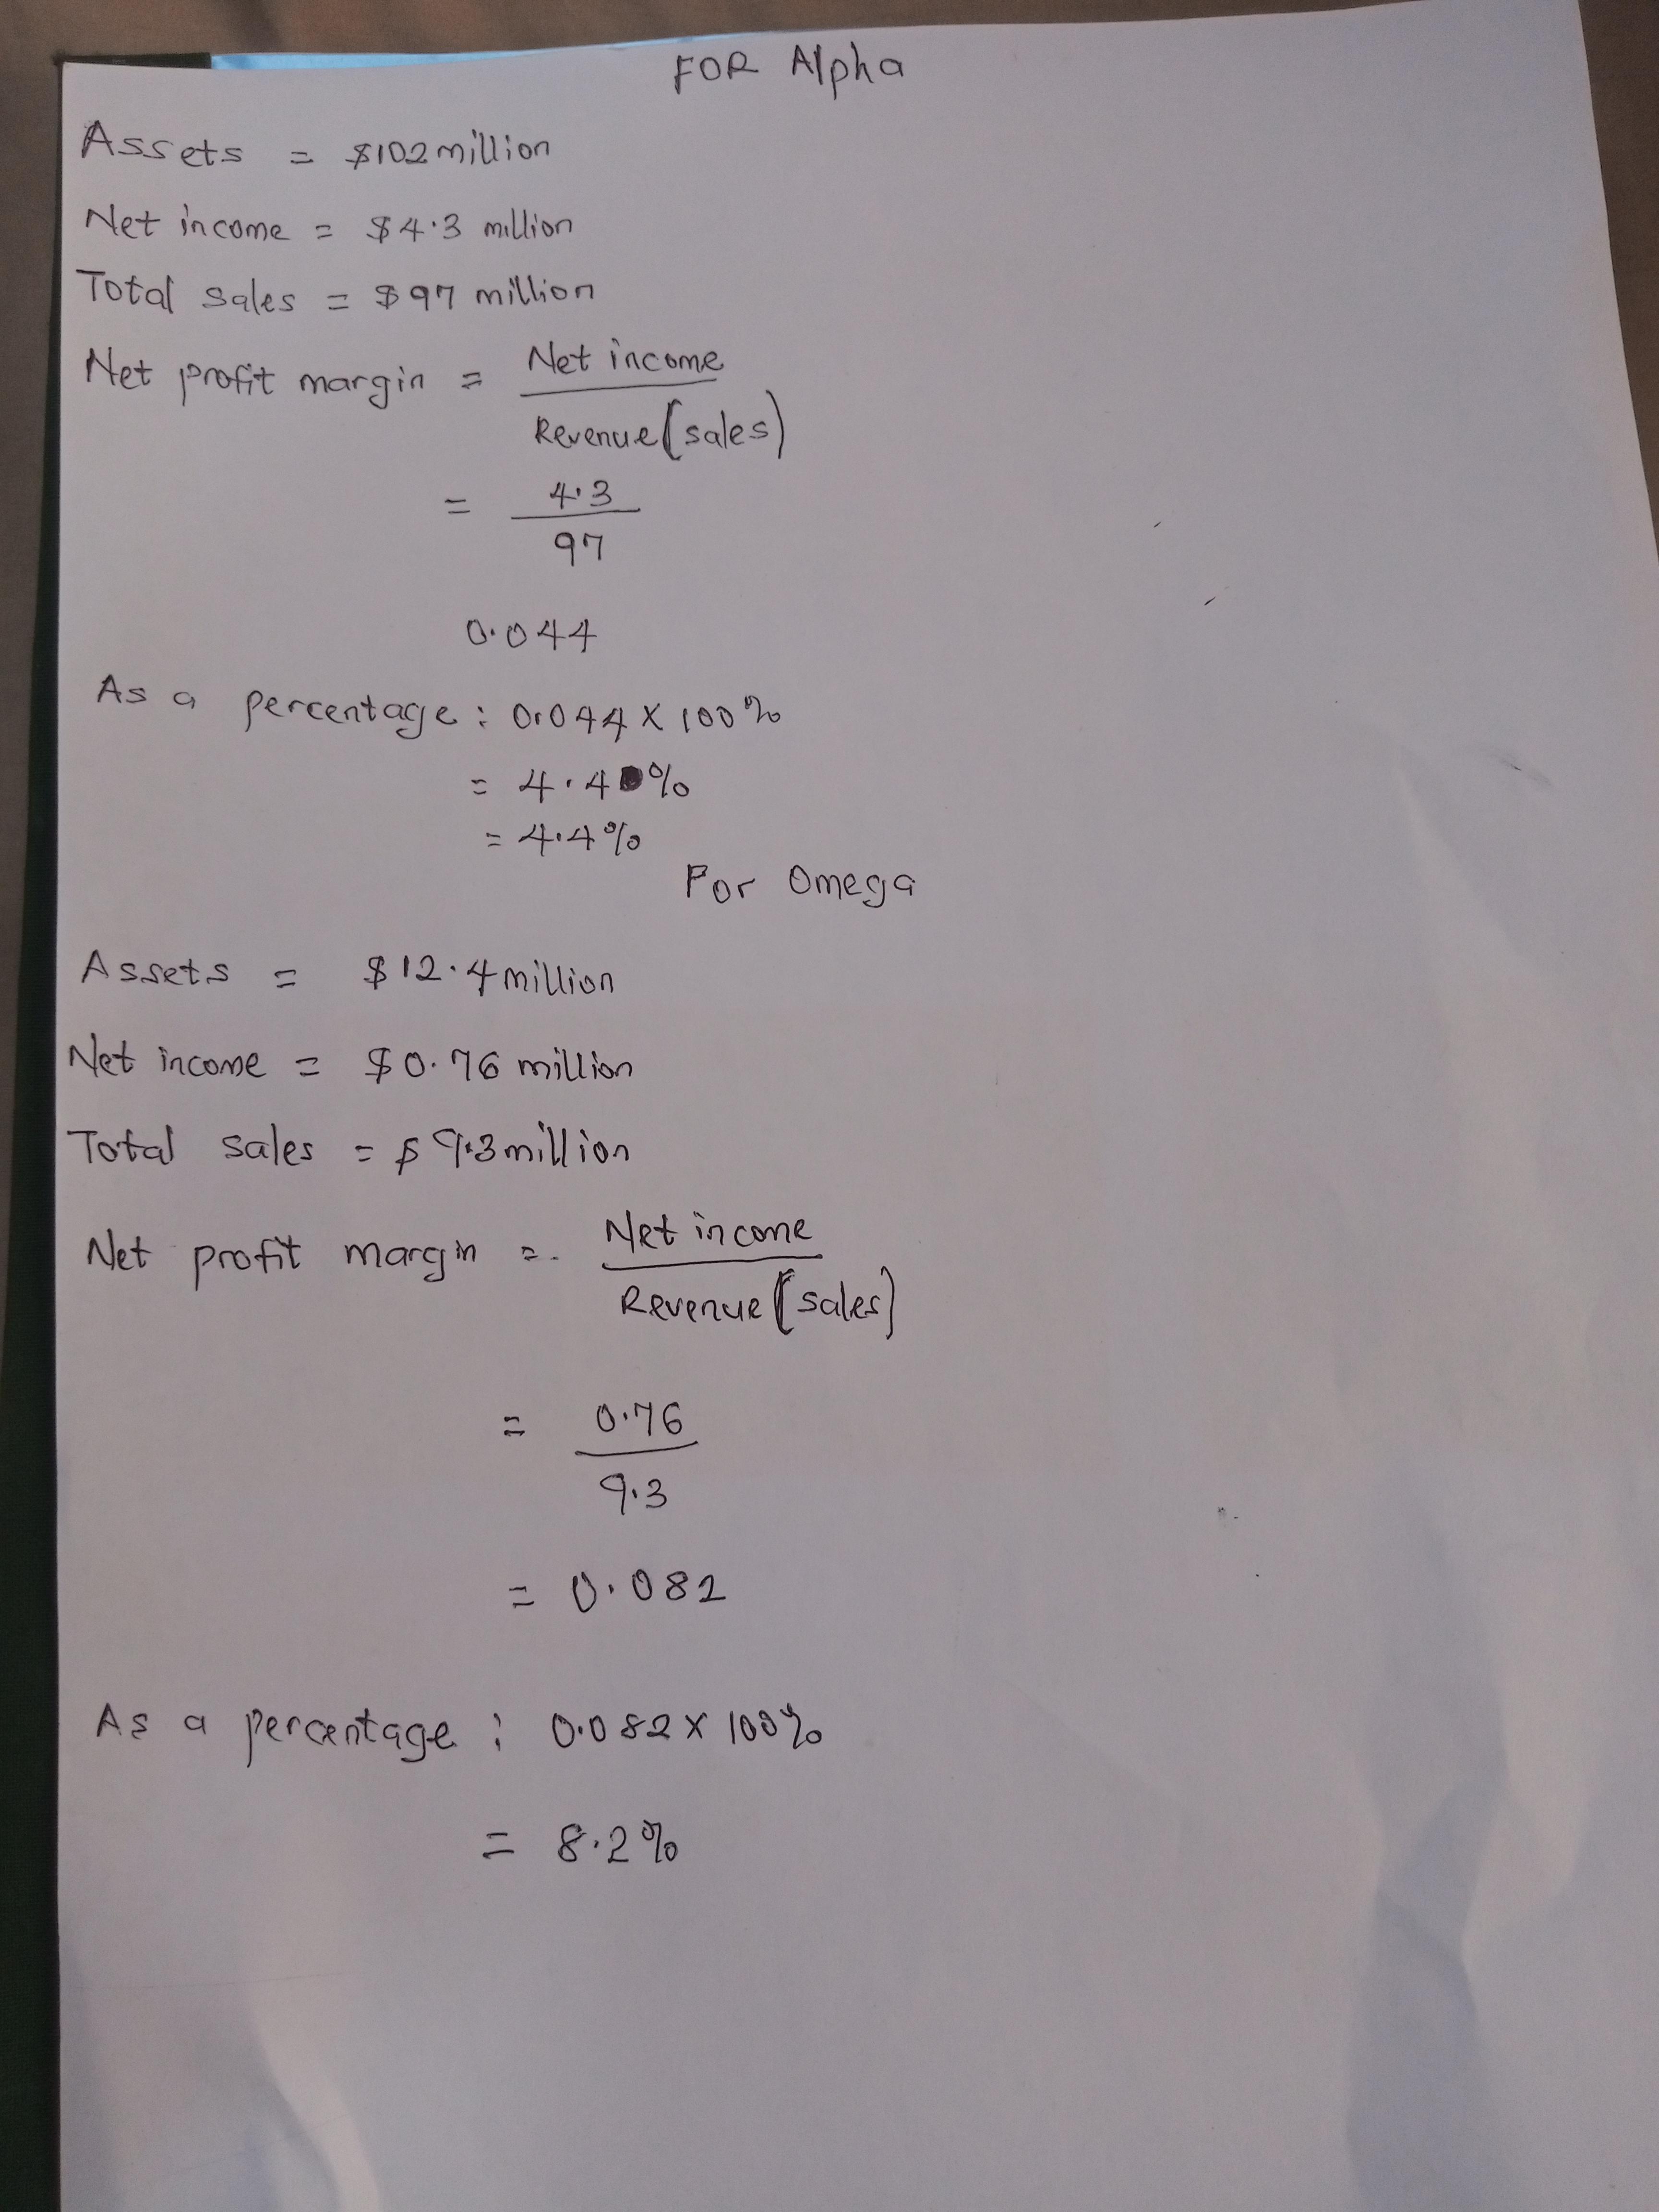 FOR Alpha
Assets = $102 million
Net income = $4.3 million
Total sales = $97 million
Net profit margin = Net income
Revenue (sales)
= 4.3
97
0.044
As a percentage : 0.044 x 100%
= 4.4 %
= 4.4%
For Omega
Assets = $12.4 million
Net income = $0.76 million
Total sales = $9.3 million
Net profit margin = Net income
Revenue (sales)
= 0.76
9.3
= 0.082
As a percentage : 0.082 x 100%
= 8.2%